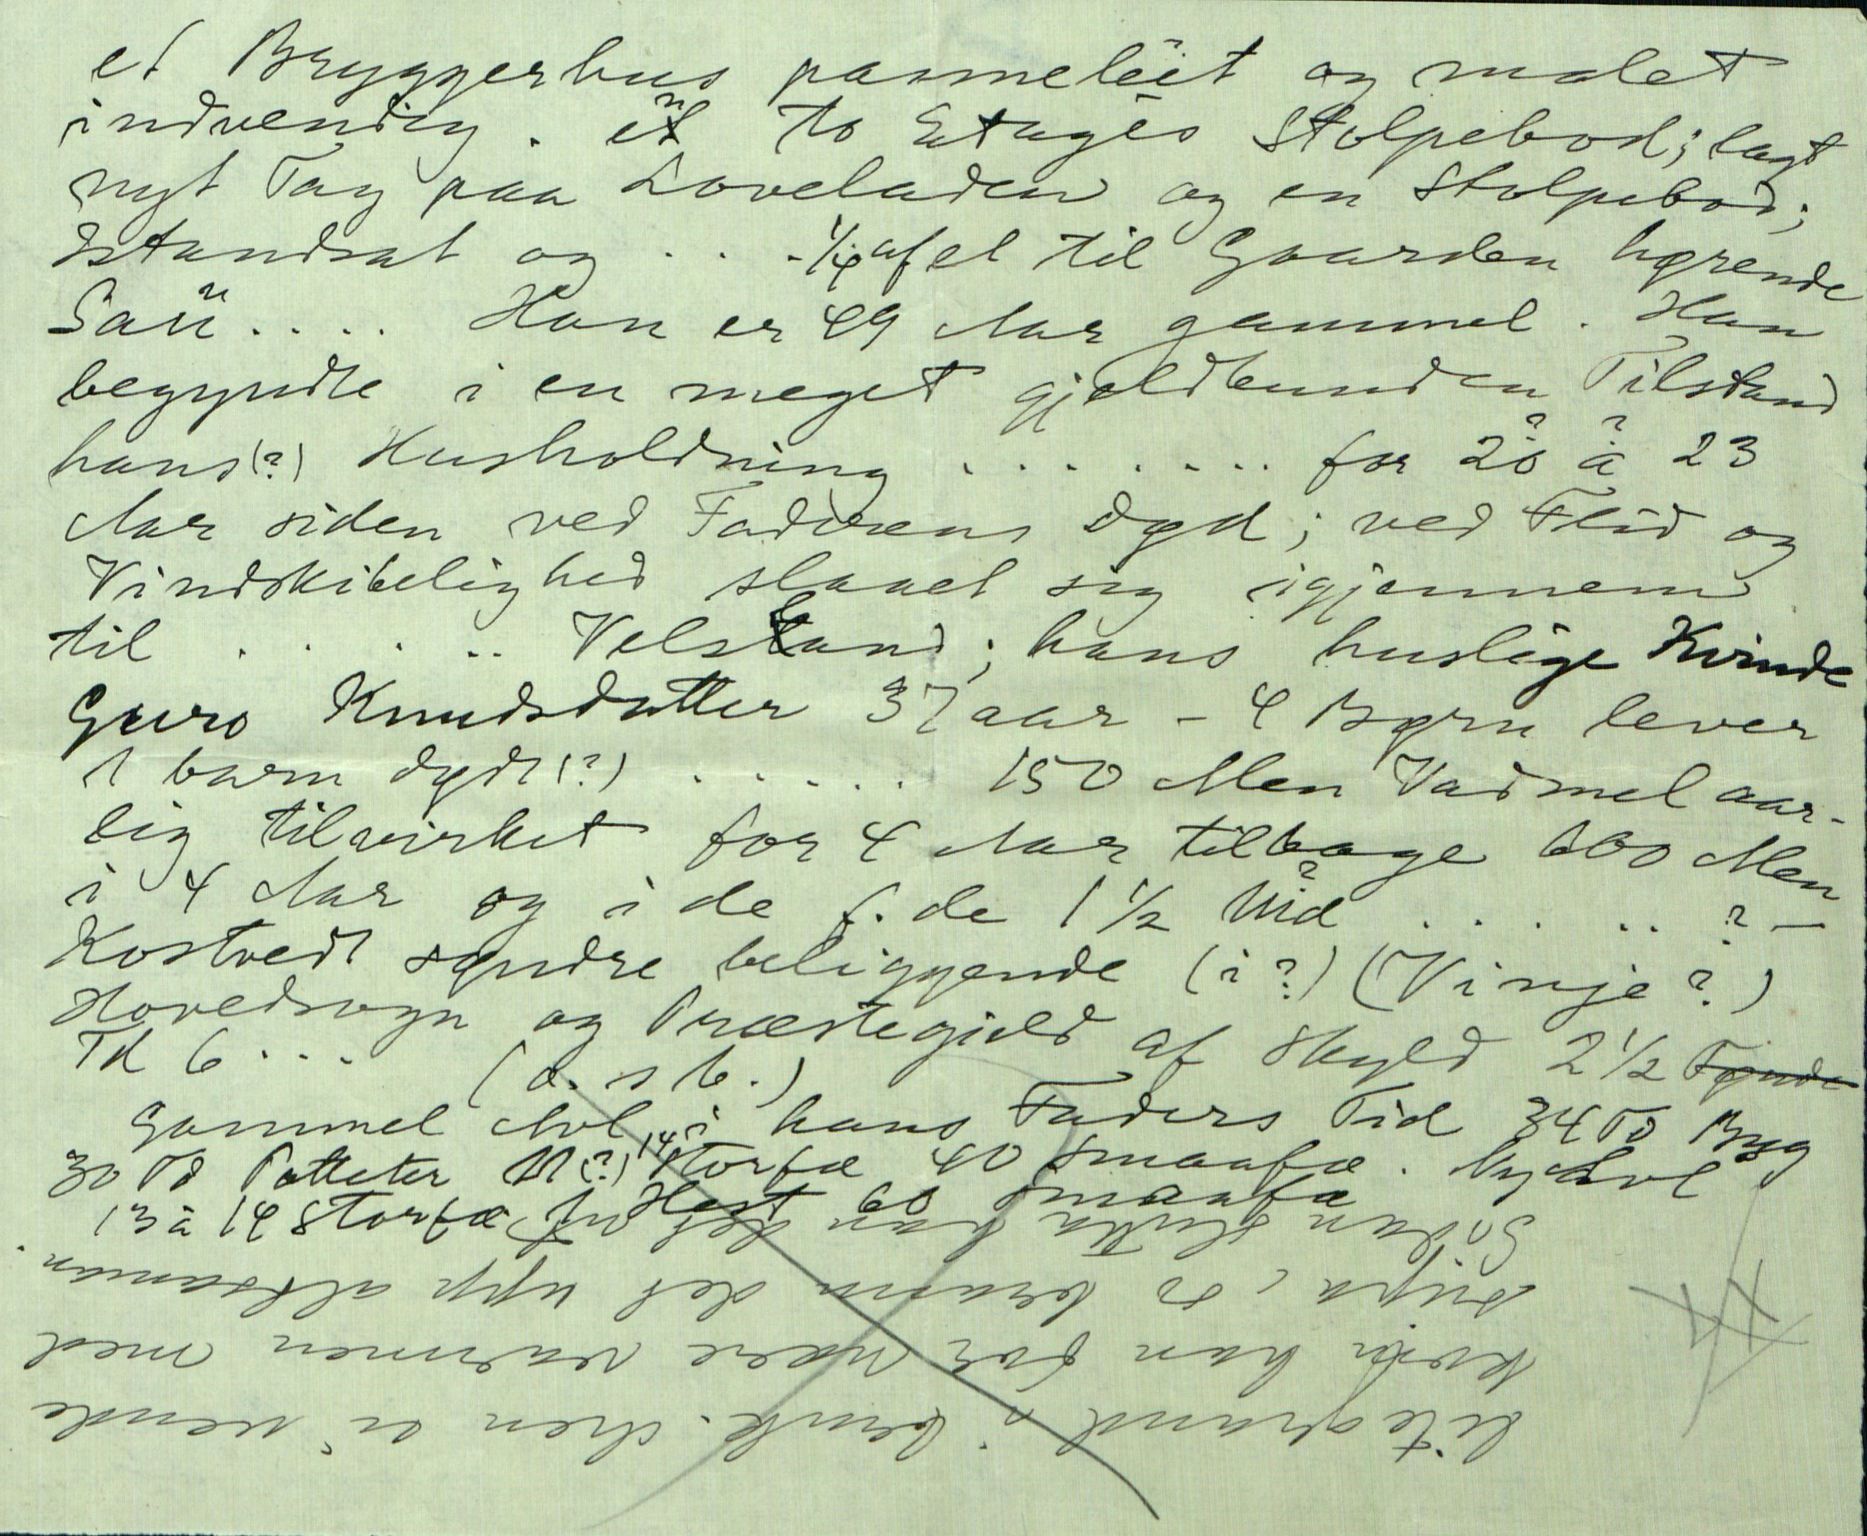 et Bryggerhus panneléit og malet
indvendig. et to Etages Stolpebod; lagt
nyt Tag paa Loveladen og en Stolpebod;
Istandsat og . . . . 1/4 af el til Gaarden hørende
Sau . . . . Han er 49 Aar gammel. Han
begyndte i en meget gjeldbunden Tilstand
hans (?) Husholdning . . . . . . . . for 20 à 23
Aar siden ved Faderens Død; ved Flid og
Vindskibelighed slaaet sig igjennem
til . . . . . Velstand; hans huslige Kvinde
Guro Knudsdatter 37 aar - 4 Børn lever
1 barn dødt (?) . . . . . 150 Alen Vadmel aar-
lig tilvirket for 4 Aar tilbage 600 Alen
i 4 Aar og i de f. de 1 1/2 . . . . . ? -
Kostvedt søndre beliggende (i ?) (Vinje ?)
Hovedsogn og Præstegjeld af Skyld 2 1/2 Tønde
Td 6 . . . (d. s b.)
Gammel Avl i hans Faders Tid 34 Td Byg
30 Td Potteter 11 (?) 14 Storfæ 40 Smaafæ. Ny Avl
13 à 14 Storfæ 1 Hest 60 Smaafæ
litegrand i benk. Men ei vende
kvar han for nære varmen med
so brann det upp altsaman.
Sidan slutta han det